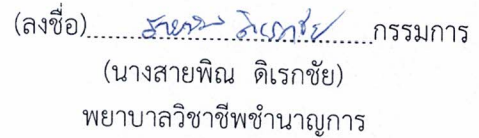 (ลงชื่อ).......สายพิณ ดิเรกชัย.......กรรมการ
(นางสายพิณ ดิเรกชัย)
พยาบาลวิชาชีพชำนาญการ